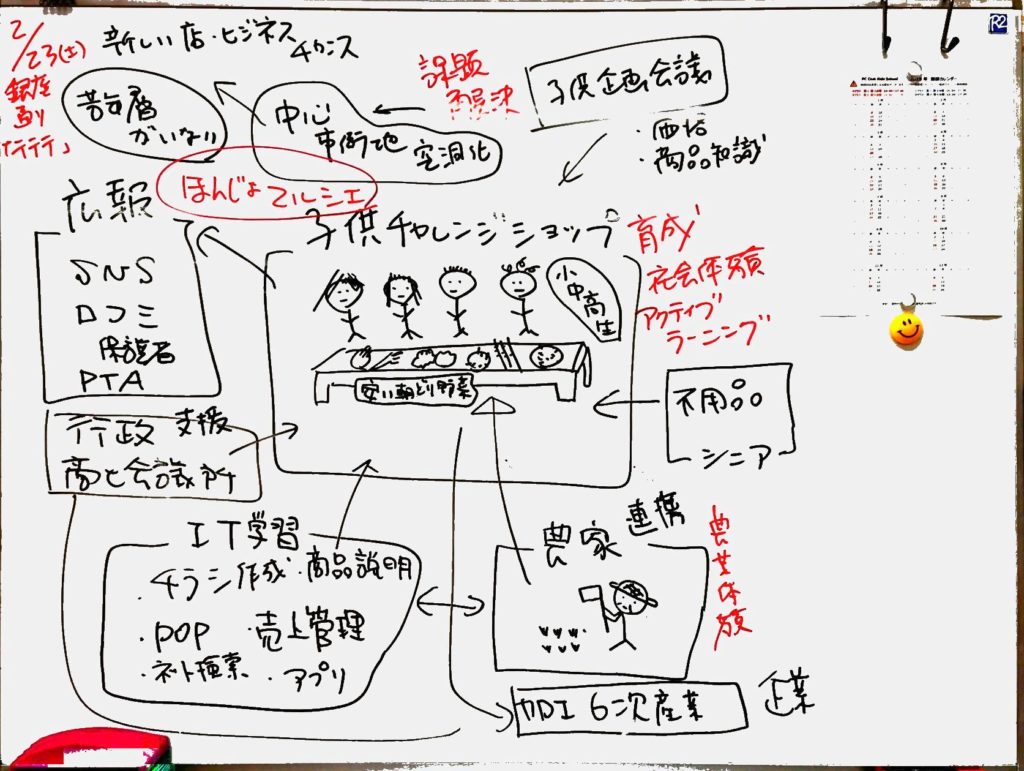 2/23(土)
銀座
通り
新しい店・ビジネス
チャンス
若者層
がいない
中心
市街地
空洞化
課題
解決
子供企画会議
・価格
・商品知識
ほんじょマルシェ
広報
SNS
口コミ
保護者
PTA
子供チャレンジショップ
小中高生
安い朝どり野菜
育成
社会体験
アクティブ
ラーニング
行政 支援
商工会議所
不用品
シニア
IT学習
・チラシ作成
・商品説明
・POP
・売上管理
・ネット検索
・アプリ
農家 連携
農業体験
加工 6次産業
企業
PC Cook Kids School
R2